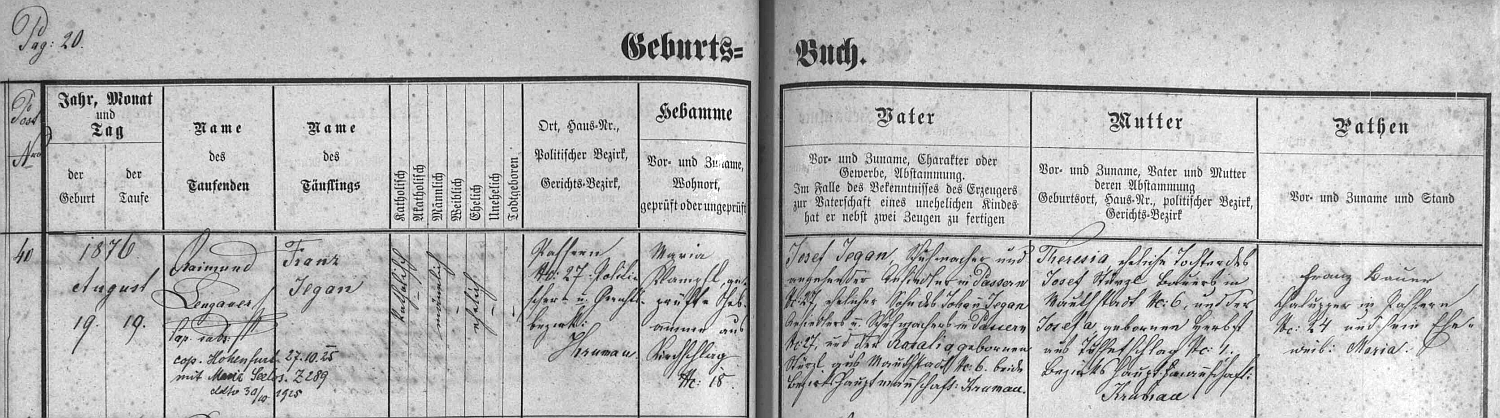 Pag: 20.
Geburts=
Buch.
Post
Nro
Jahr, Monat
und
Tag
der
Geburt
der
Taufe
Name
des
Taufenden
Name
des
Täuflings
Katholisch
Akatholisch
Männlich
Weiblich
Ehelich
Unehelich
Todtgeboren
Ort, Haus-Nr.,
Politischer Bezirk,
Gerichts-Bezirk,
Hebamme
Vor- und Zuname,
Wohnort,
geprüft oder ungeprüft
Vater
Vor- und Zuname, Charakter oder
Gewerbe, Abstammung.
Im Falle des Bekenntnisses des Erzeugers
zur Vaterschaft eines unehelichen Kindes
hat er nebst zwei Zeugen zu fertigen
Mutter
Vor- und Zuname, Vater und Mutter
deren Abstammung
Geburtsort, Haus-Nr., politischer Bezirk,
Gerichts-Bezirk
Pathen
Vor- und Zuname und Stand
40
1876
August
19. 19.
Raimund
cop. Hohenfurt 27.10.25
mit Marie Z 289
dto 30/10 1925
Franz
Jegan
katholisch
männlich
ehelich
Nc: 27
bezirk:
Krumau.
Maria
geprüfte Heb-
amme aus
Kirchschlag
Nc: 18.
Josef Jegan, Schuhmacher und
Nc 27, ehelicher Sohn des Johan Jegan
u. Schuhmachers in
Nc: 27, und der Rosalia gebornen
Stürzl, aus Nc: 6. beide
Bezirkshauptmanschaft: Krumau.
Theresia eheliche Tochter des
Josef Stürzl Bauers in
Nc: 6, und der
Josefa, gebornen Herbst
aus Nc: 1.
Bezirkshauptmanschaft:
Krumau
Franz Bauer
Chalupper in
Nc: 24 und sein Ehe-
weib: Maria.